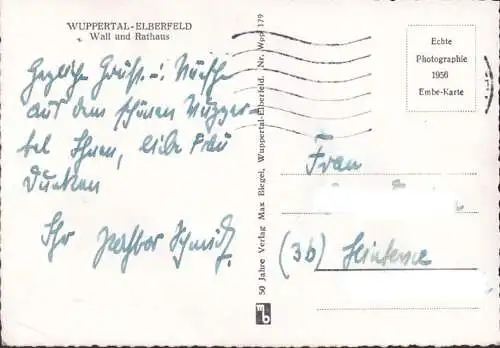 WUPPERTAL-ELBERFELD
Wall und Rathaus
Herzliche Grüße u. Wünsche
aus dem schönen Wupper-
tal Ihnen, liebe Frau
Ihr Nachbar Schmidt
50 Jahre Verlag Max Biegel, Wuppertal-Elberfeld. Nr. Wpp 179
Echte
Photographie
1956
Embe-Karte
Frau
(3b)
mb